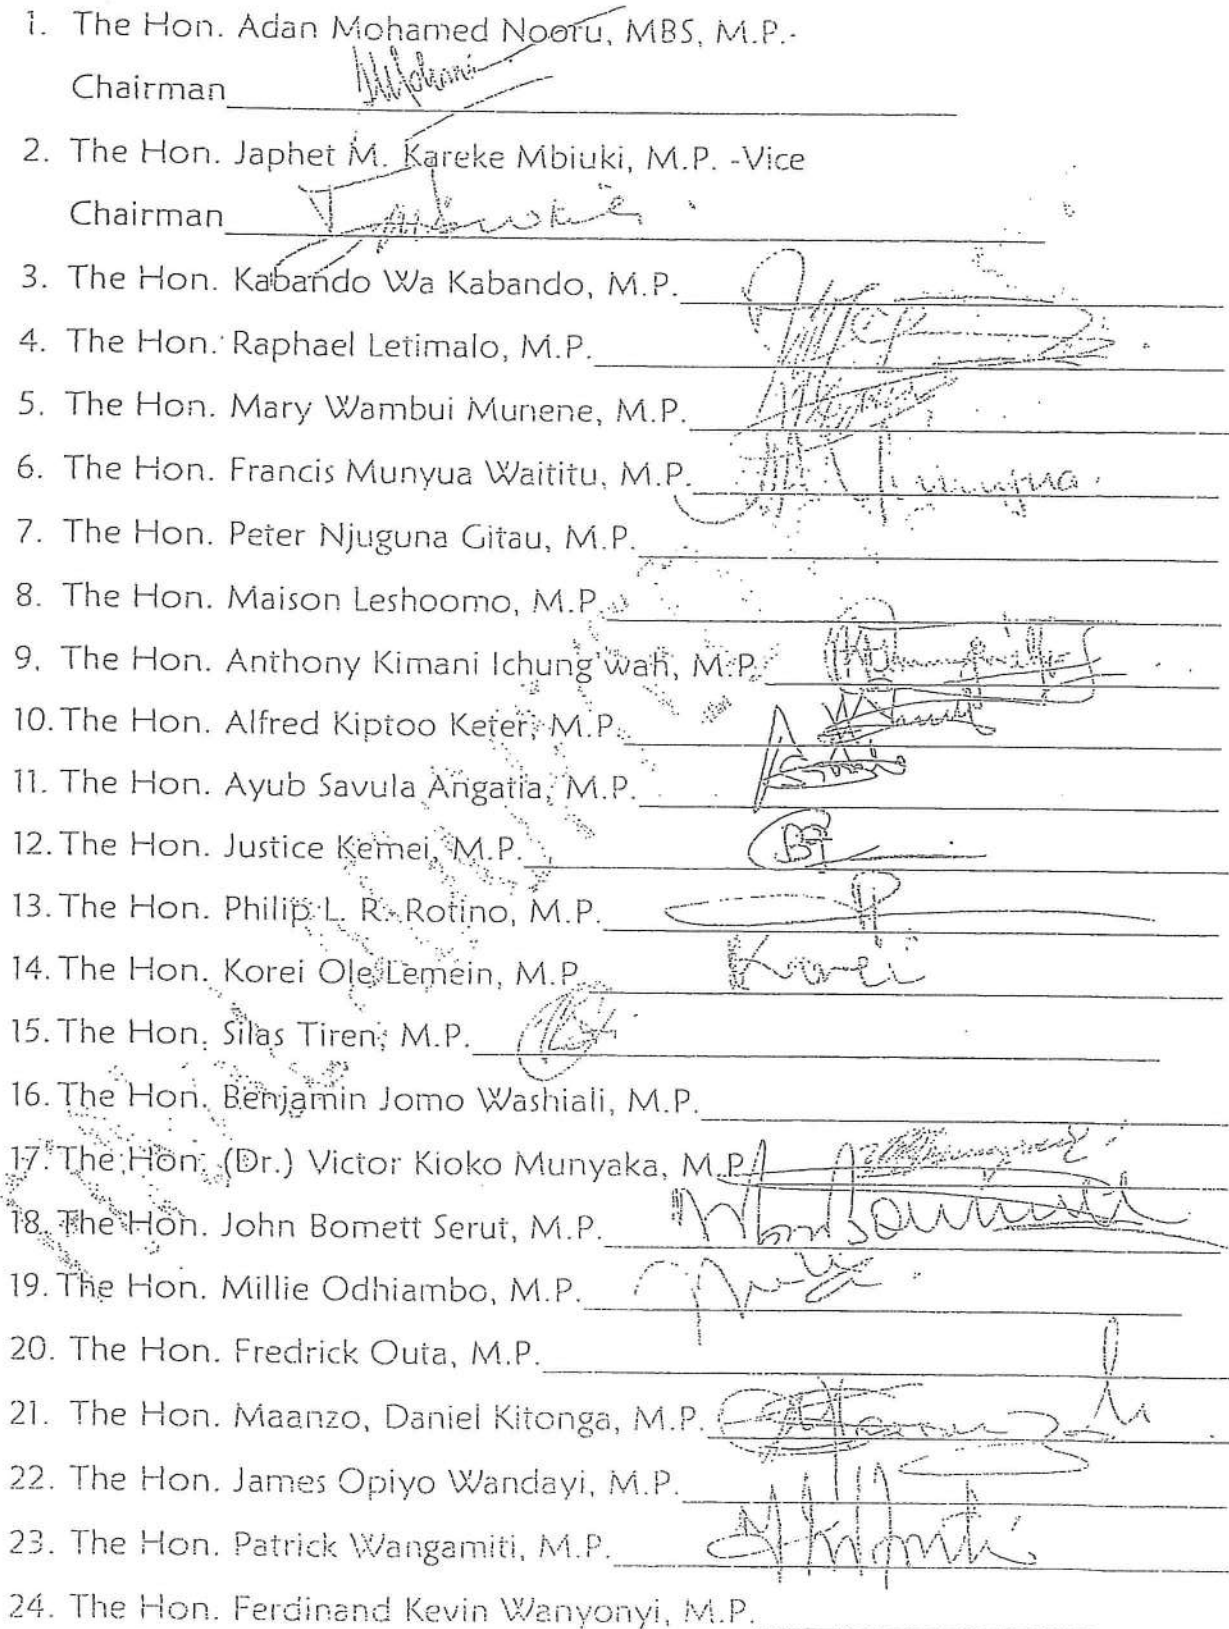 1. The Hon. Adan Mohamed Nooru, MBS, M.P.-
Chairman
2. The Hon. Japhet M. Kareke Mbiuki, M.P. -Vice
Chairman
3. The Hon. Kabando Wa Kabando, M.P.
4. The Hon. Raphael Letimalo, M.P.
5. The Hon. Mary Wambui Munene, M.P.
6. The Hon. Francis Munyua Waititu, M.P.
7. The Hon. Peter Njuguna Gitau, M.P.
8. The Hon. Maison Leshoomo, M.P.
9. The Hon. Anthony Kimani Ichung'wah, M.P.
10. The Hon. Alfred Kiptoo Keter, M.P.
11. The Hon. Ayub Savula Angatia, M.P.
12. The Hon. Justice Kemei, M.P.
13. The Hon. Philip L. R. Rotino, M.P.
14. The Hon. Korei Ole Lemein, M.P.
Korei
15. The Hon. Silas Tiren, M.P.
16. The Hon. Benjamin Jomo Washiali, M.P.
17. The Hon. (Dr.) Victor Kioko Munyaka, M.P.
18. The Hon. John Bomett Serut, M.P.
19. The Hon. Millie Odhiambo, M.P.
20. The Hon. Fredrick Outa, M.P.
21. The Hon. Maanzo, Daniel Kitonga, M.P.
22. The Hon. James Opiyo Wandayi, M.P.
23. The Hon. Patrick Wangamiti, M.P.
24. The Hon. Ferdinand Kevin Wanyonyi, M.P.